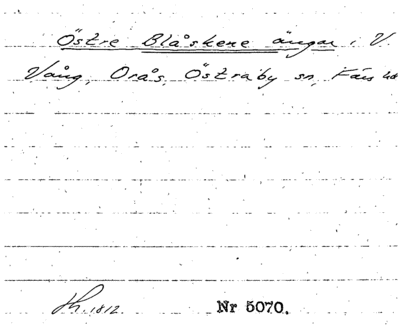 Östre Blåskene ängar, V.
Vång, Orås, Östraby sn, Färs hd
1812. Nr 5070.